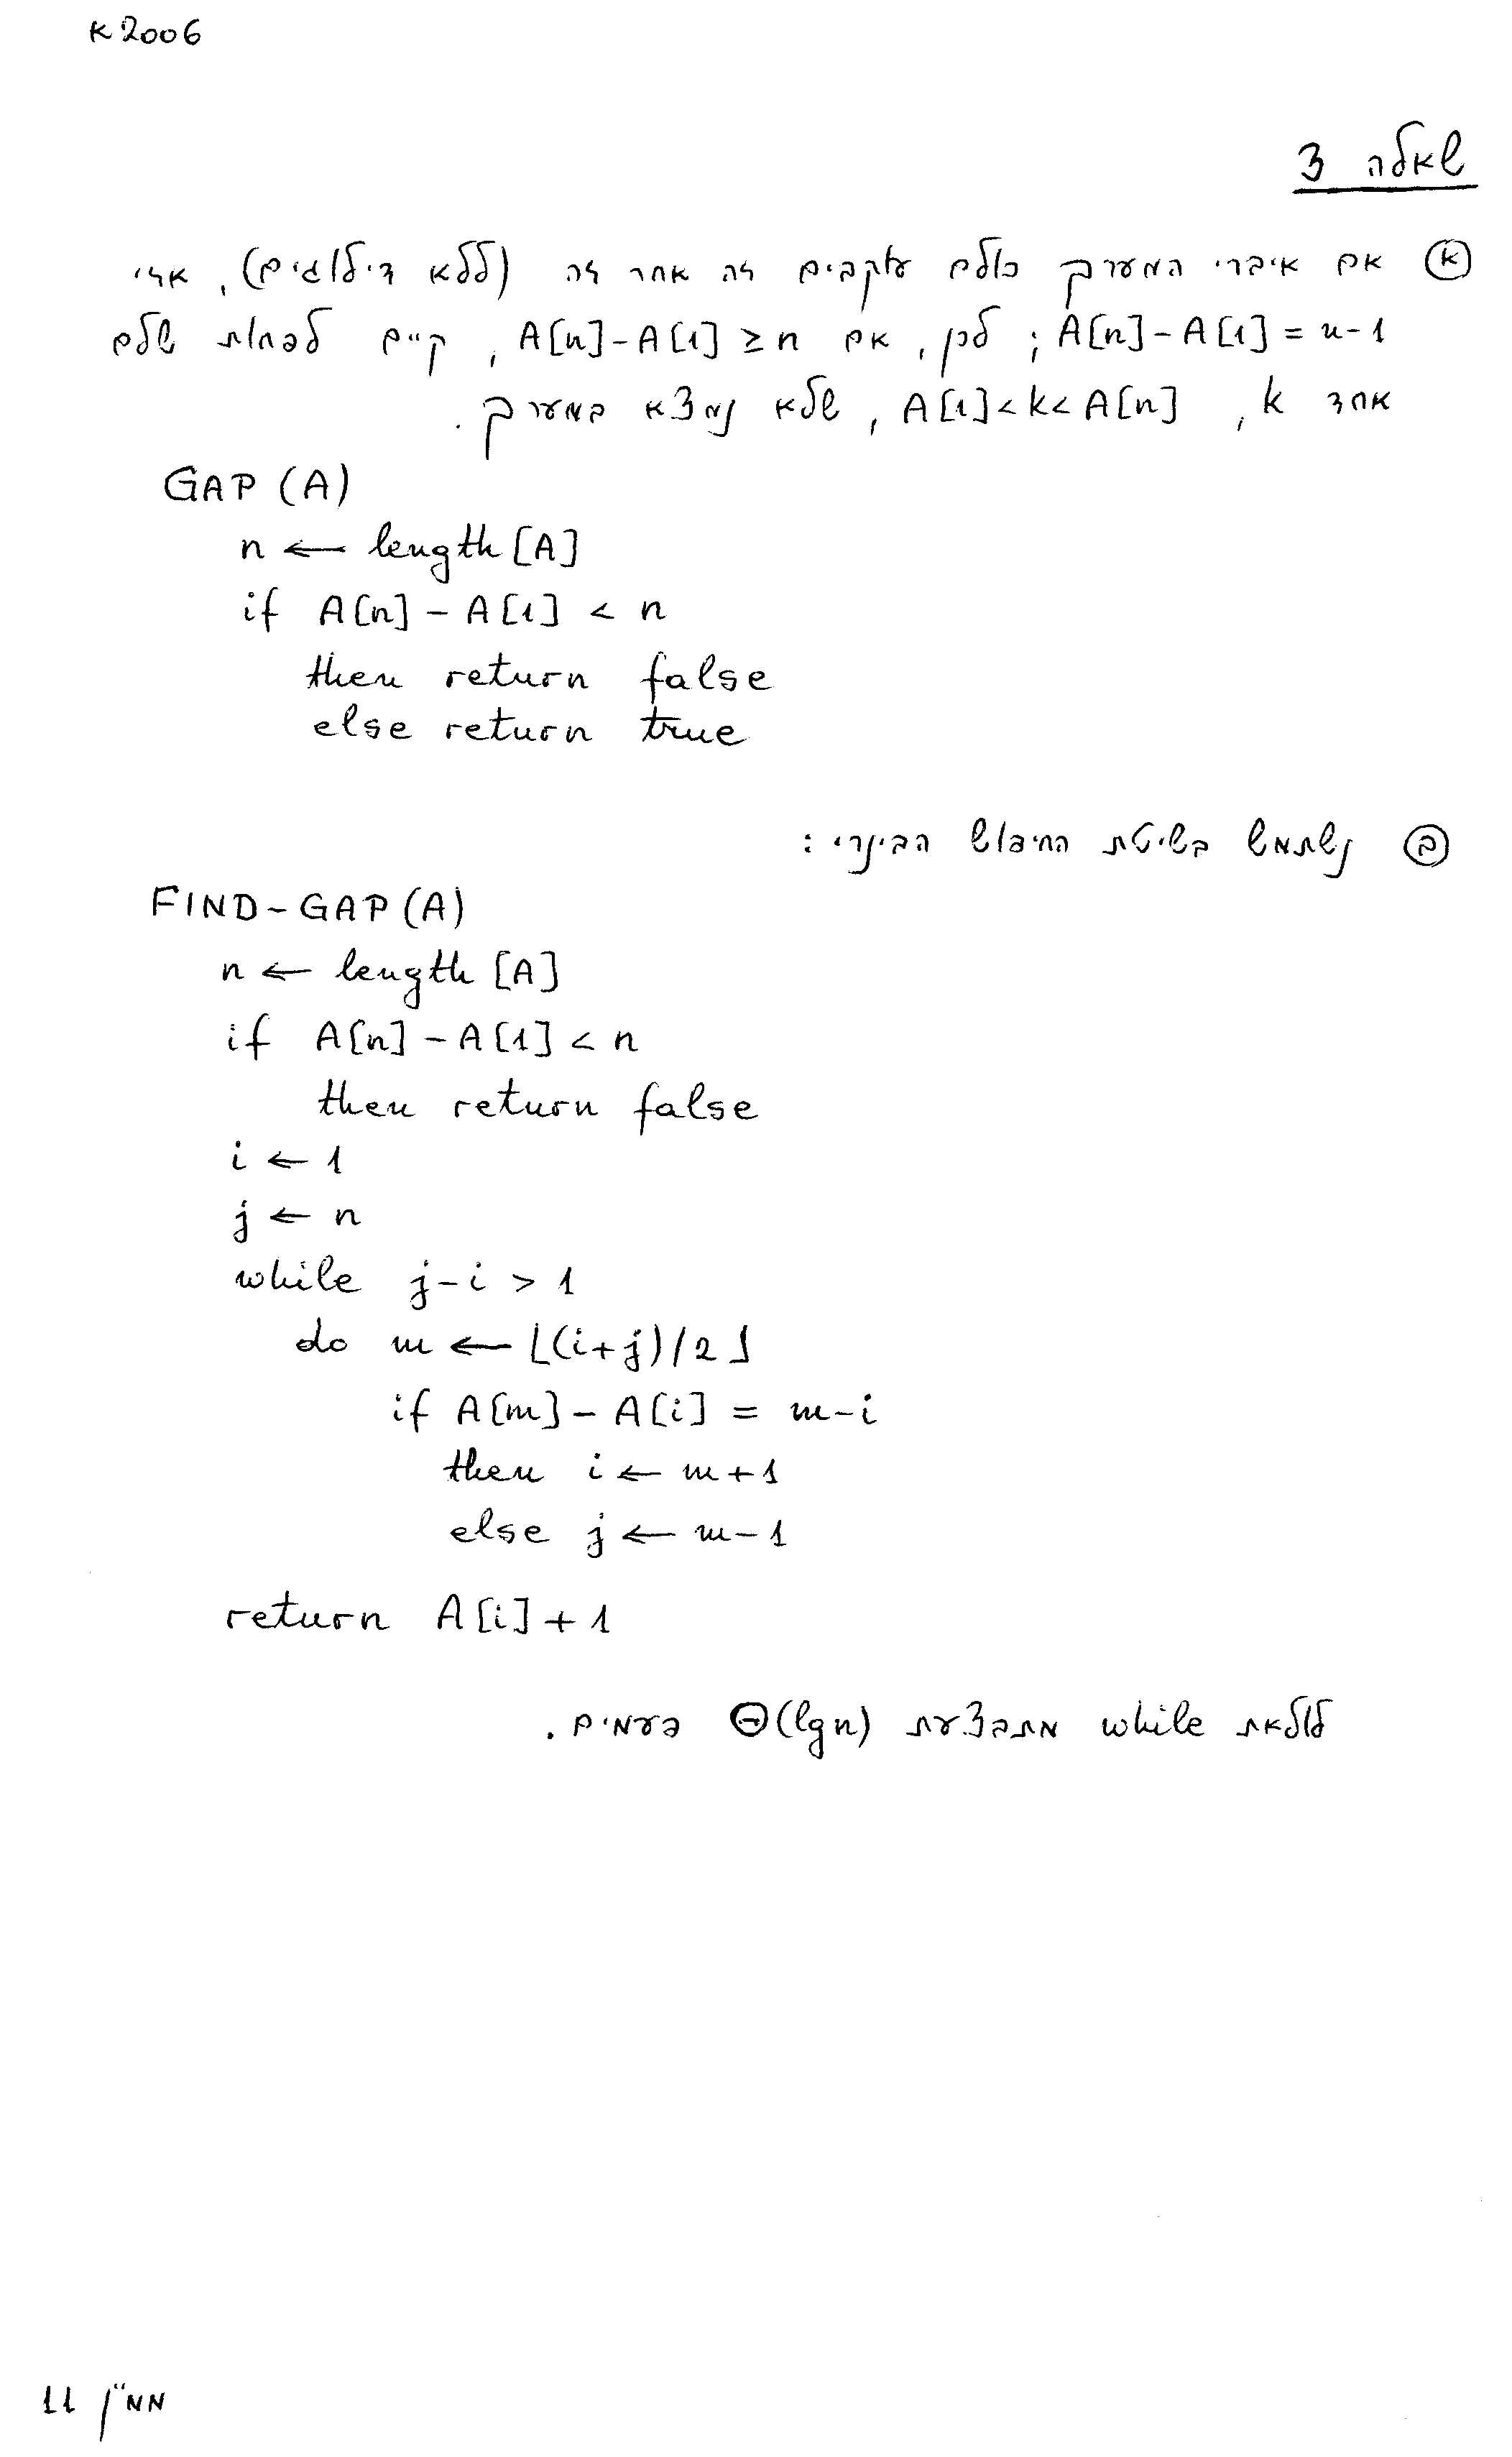 2006א
שאלה 3
(א) אם איברי המערך כולם עוקבים זה אחר זה (ללא דילוגים), אזי
A[n]-A[1] = n-1 ; לכן, אם A[n]-A[1] ≥ n, קיים לפחות שלם
אחד k, A[1]<k<A[n], שלא נמצא במערך.
GAP (A)
n ← length [A]
if A[n] - A[1] < n
then return false
else return true
(ב) נשתמש בשיטת החיפוש הבינרי :
FIND-GAP (A)
n ← length [A]
if A[n] - A[1] < n
then return false
i ← 1
j ← n
while j-i > 1
do m ← ⌊(i+j)/2⌋
if A[m] - A[i] = m-i
then i ← m+1
else j ← m-1
return A[i] + 1
לולאת while מתבצעת Θ(lgn) פעמים.
ממ"ן 11